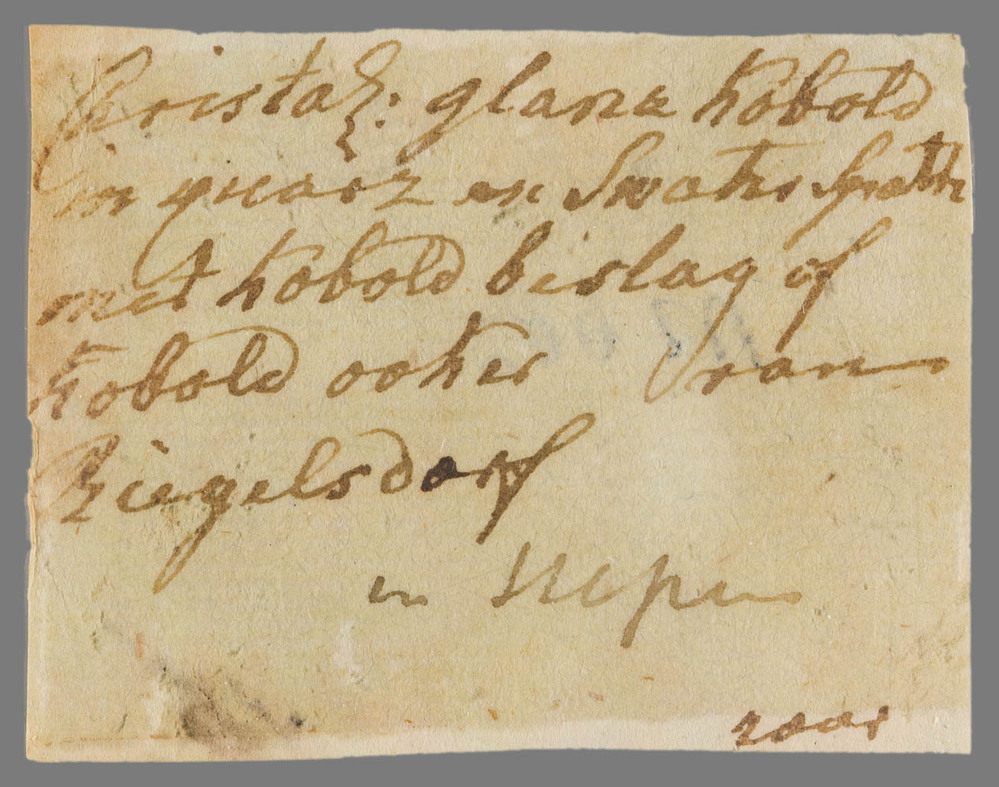 kristal: glanz kobold
in quarz en Swaher Spath
met kobold beslag of
kobold ooker van
Riegelsdorf
in Hessen
raar